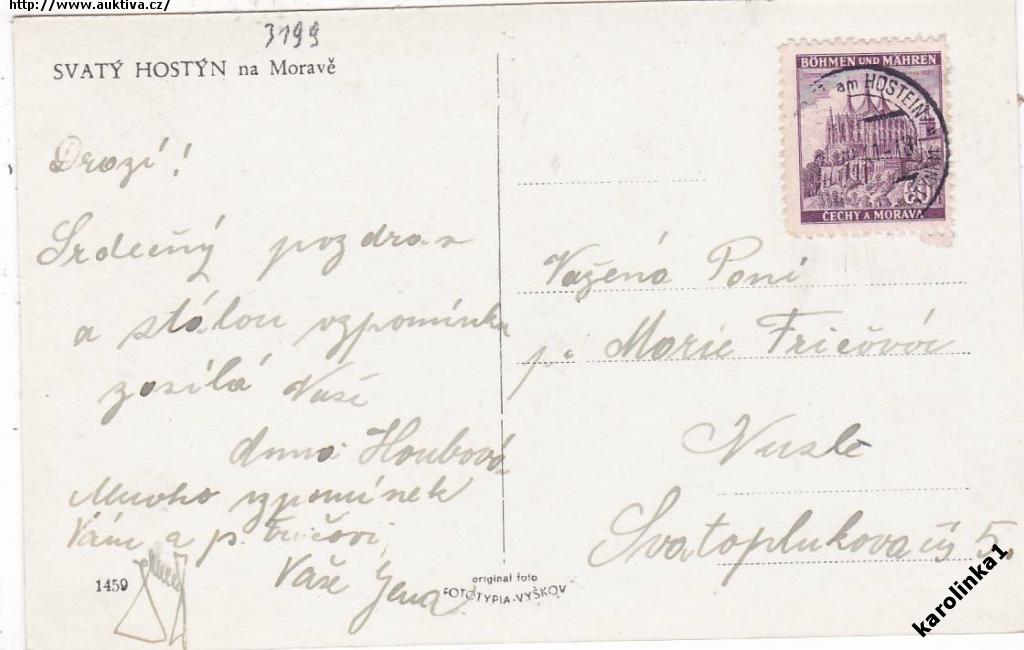 http://www.auktiva.cz/
3199
SVATÝ HOSTÝN na Moravě
Drazí!
Srdečný pozdrav
a stálou vzpomínku
zasílá Vaše
Anna Houbová
Mnoho vzpomínek
Vám a p. Fričovi
Vaše Jena
1459
original foto
FOTOTYPIA-VYŠKOV
BÖHMEN UND MÄHREN
am HOSTEIN
60
ČECHY A MORAVA
Vážená Paní
pí Marie Fričová
Nusle
Svatoplukova čís 5.
karolinka1